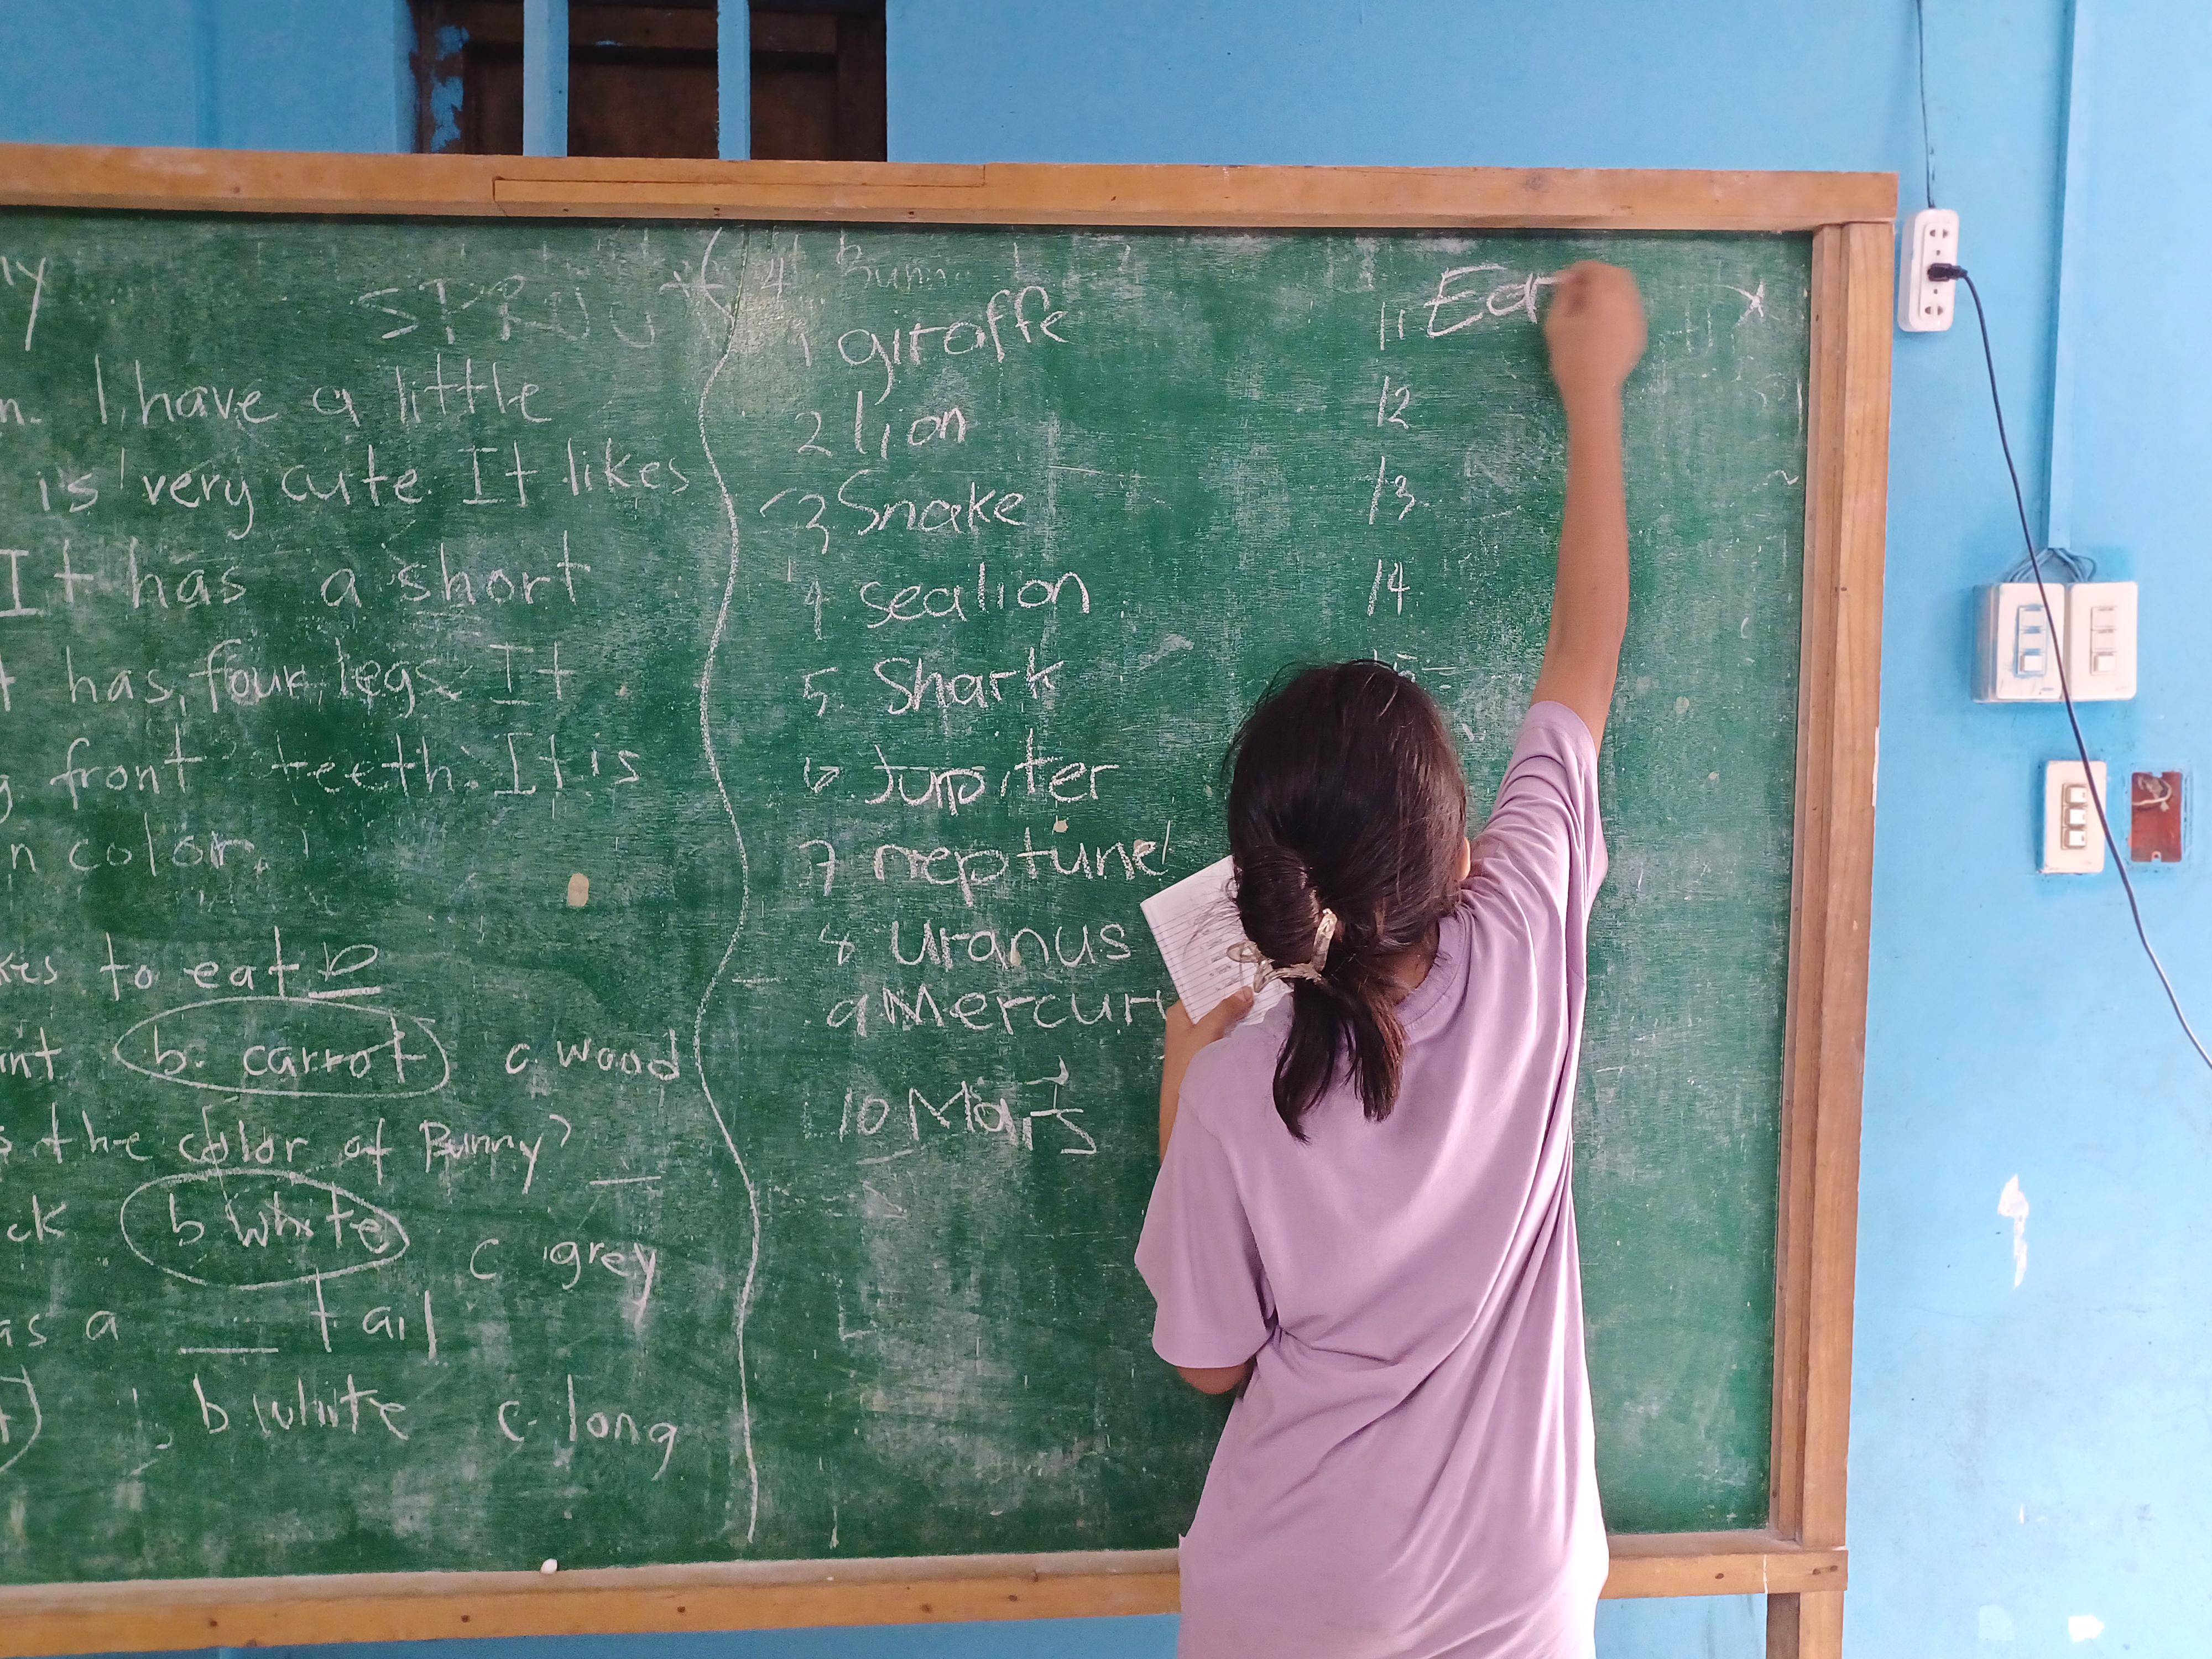 ny
I have a little
is very cute. It likes
It has a short
has four legs It
front teeth. It is
n color.
to eat
b. carrot c wood
the color of Bunny?
ck b white c grey
as a ___ tail
b white c. long
1 giraffe
2 lion
3 Snake
4 sealion
5. Shark
6 Jupiter
7 neptune
8 uranus
9 Mercur
10 Mars
11 Ear
12
13
14
15